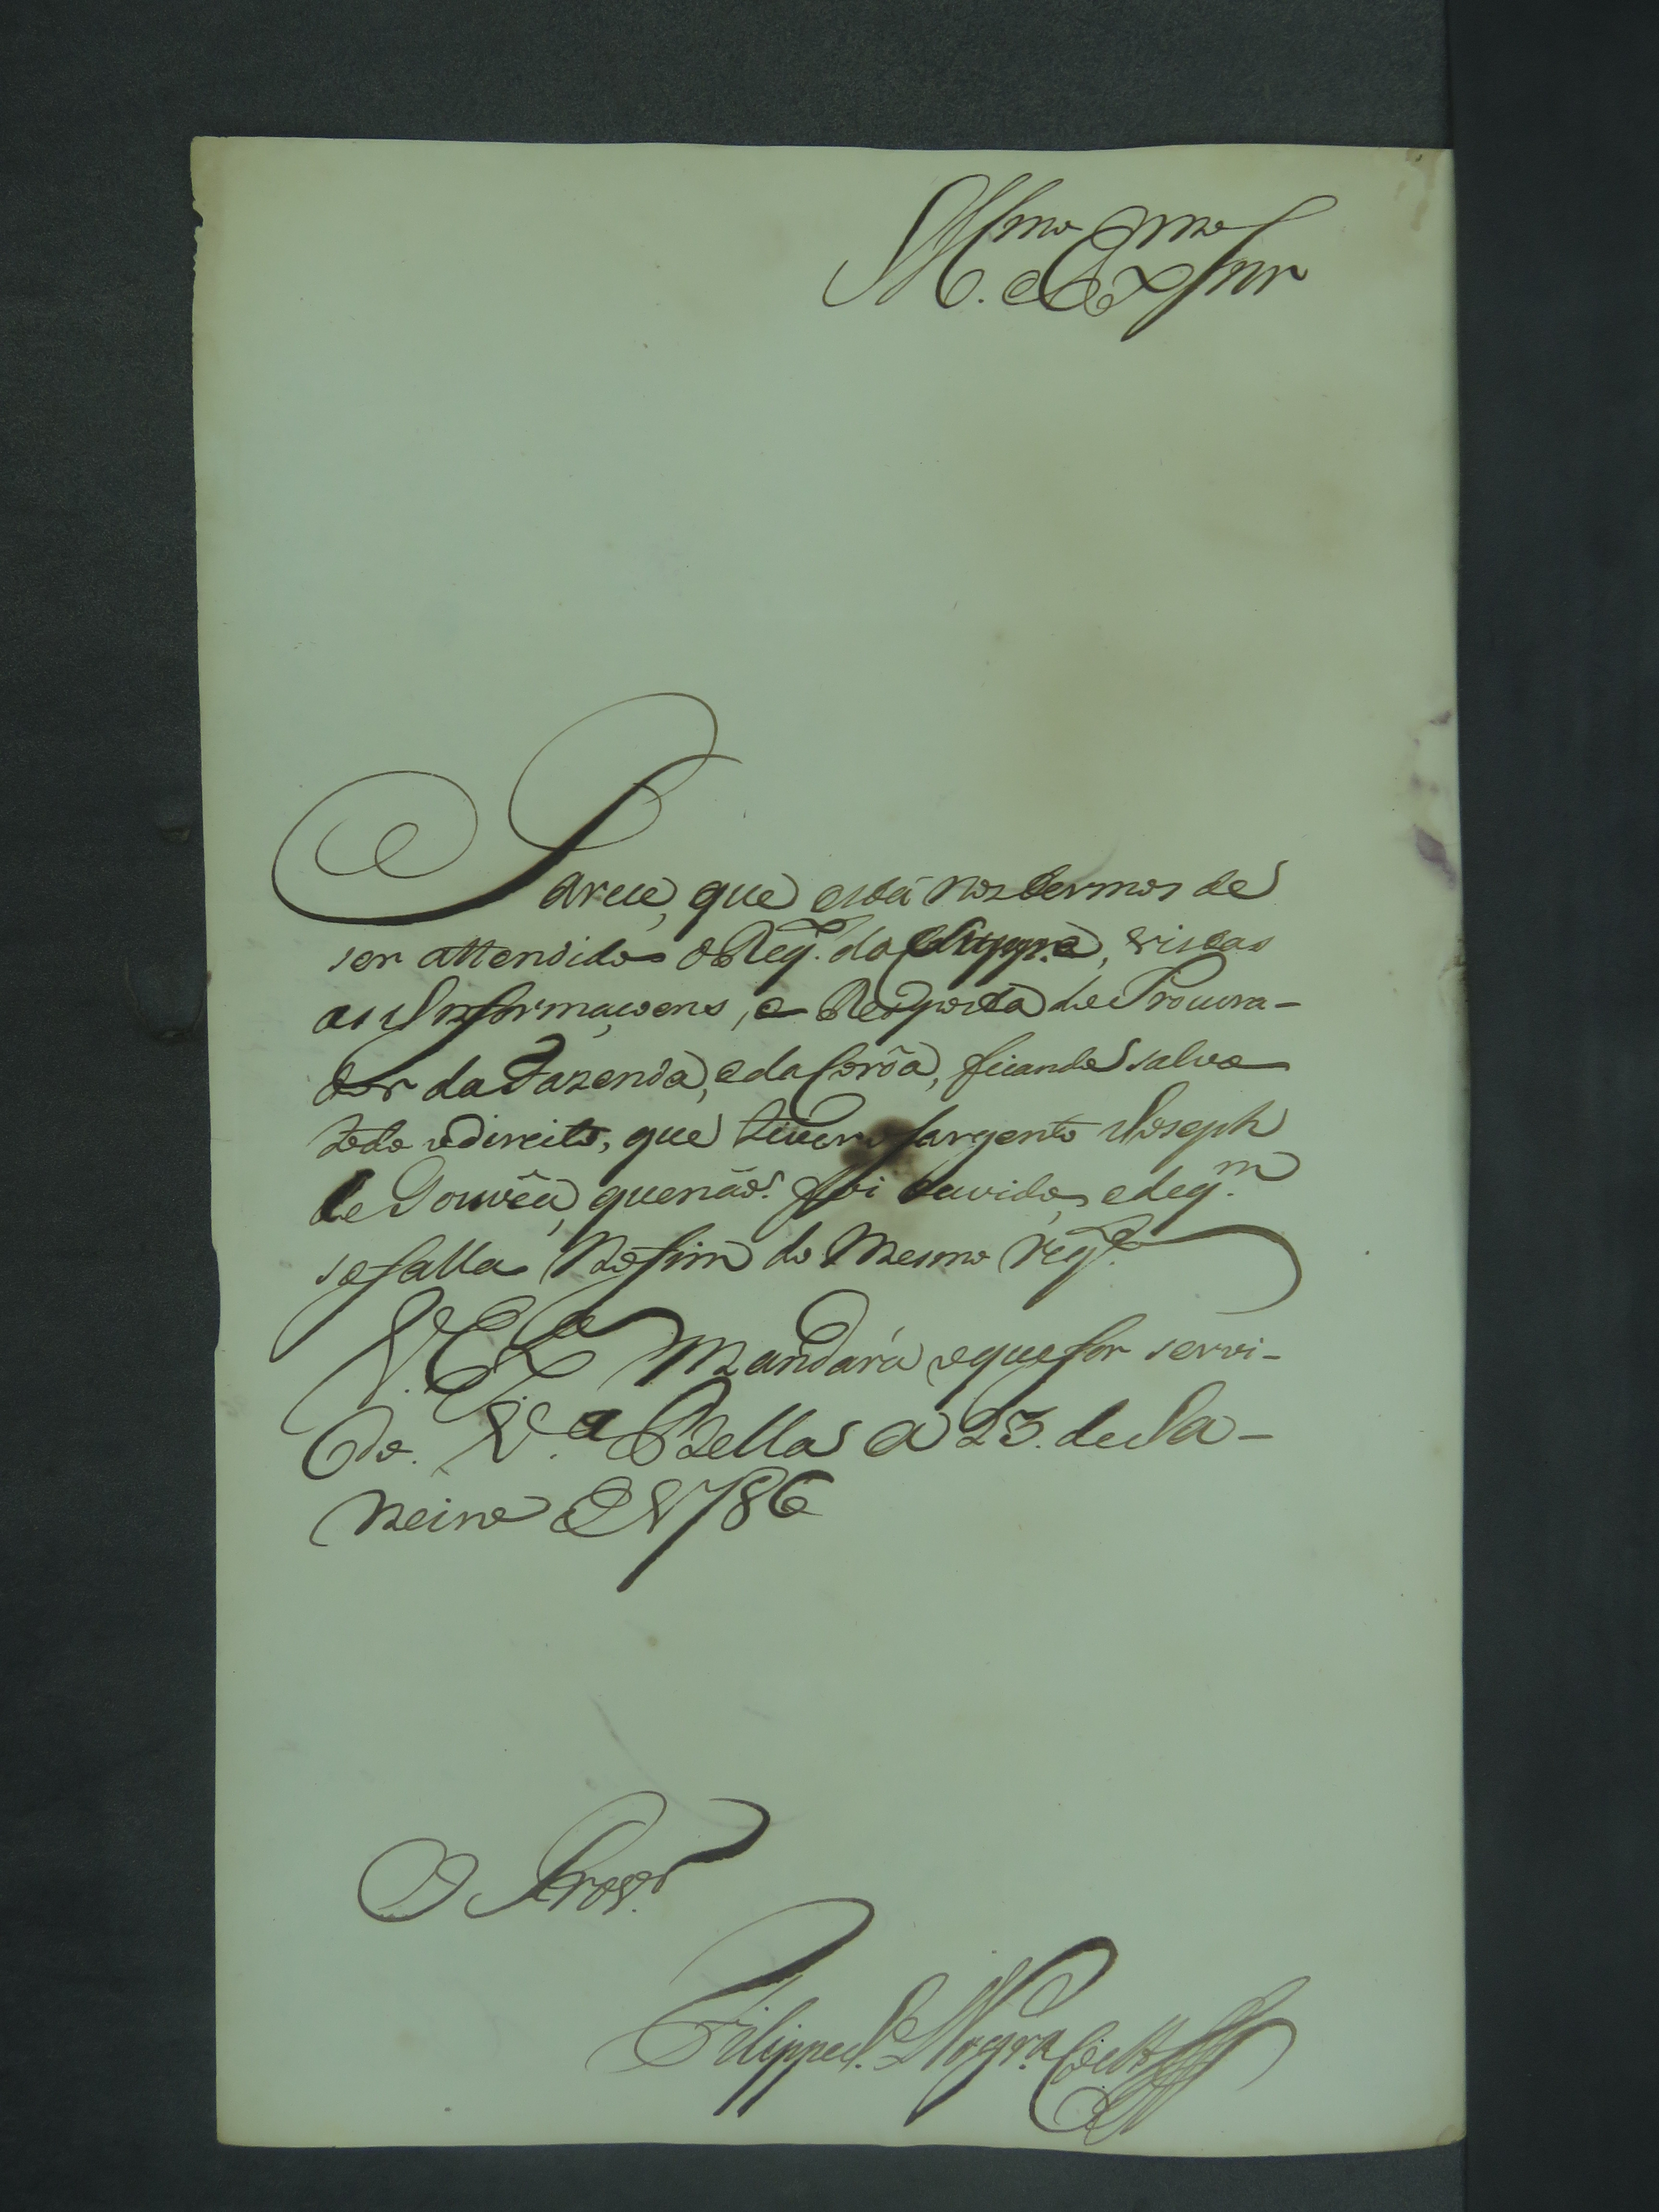 Illmo Exmo Snr
Parece, que está nos termos de
ser attendido o Reqto. da Suppe., vistas
as Informaçoens, e Resposta do Procura-
dor da Fazenda, e da Corôa, ficando salvo
todo o direito, que tiver o Sargento Joseph
de Gouvêa, que não foi ouvido, e de qm.
se falla no fim do mesmo reqto.
V. Exa. Mandará o que for servi-
do. Va. Bella a 23. de Ja-
neiro de 1786
O Provor.
Filippe J. Nogra. Coelho